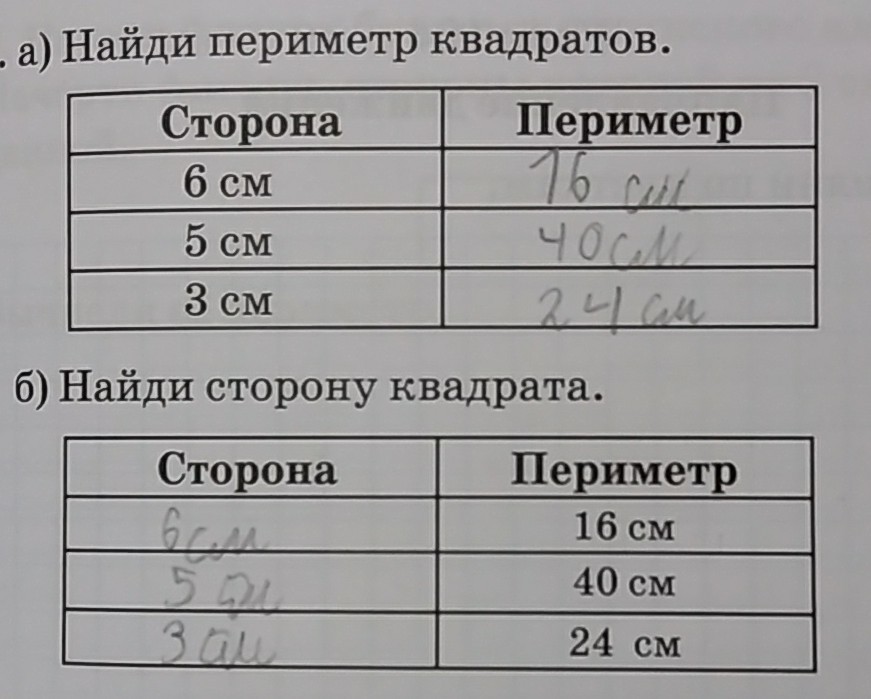 . а) Найди периметр квадратов.
Сторона Периметр
6 см 16 см
5 см 40 см
3 см 24 см
б) Найди сторону квадрата.
Сторона Периметр
6 см 16 см
5 см 40 см
3 см 24 см